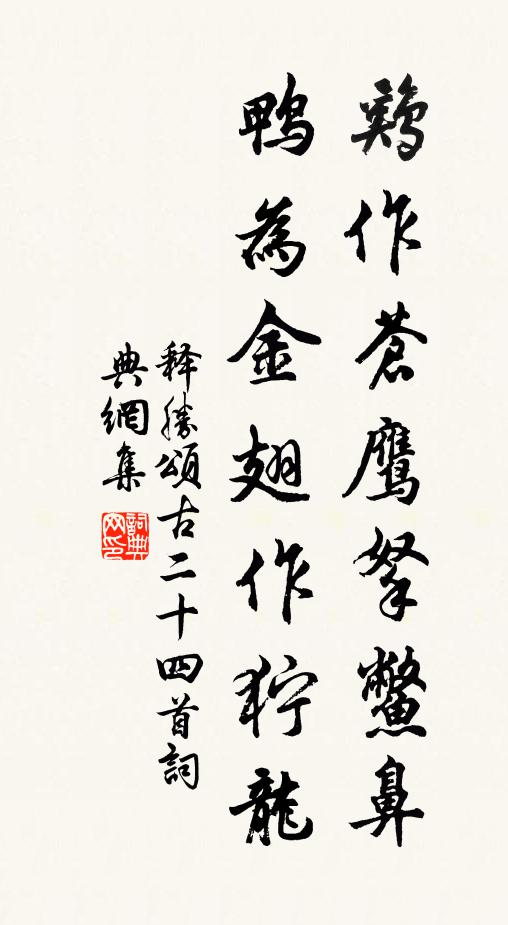 鷄作蒼鷹拏鱉鼻
鴨為金翅作狞龍
释勝頌古二十四首詞
典網集
詞典
网印